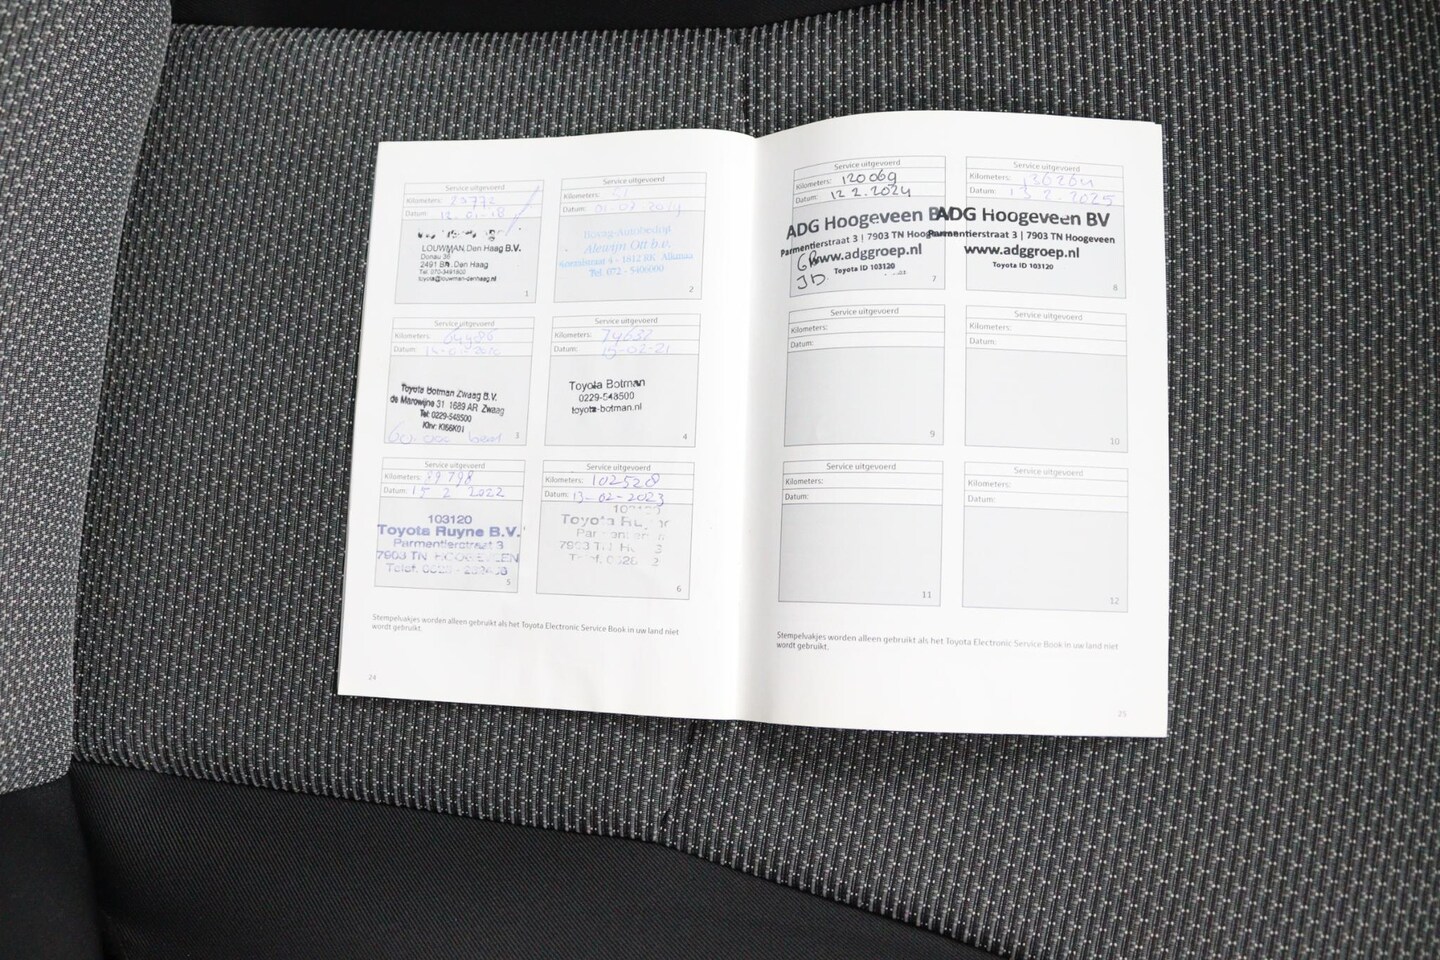 Service uitgevoerd
Kilometers:
Datum: 12-01-18
LOUWMAN Den Haag B.V.
Donau 36
2491 BA Den Haag
Tel. 070-3491800
toyota@louwman-denhaag.nl
1
Service uitgevoerd
Kilometers:
Datum:
Bovag-Autobedrijf
Alewijn Ott b.v.
1812 RK Alkmaar
Tel. 072 - 5406000
2
Service uitgevoerd
Kilometers: 64486
Datum:
Toyota Botman Zwaag B.V.
de Marowijne 31 1689 AR Zwaag
Tel: 0229-548500
Klnr: KI66K01
60.000 beurt
3
Service uitgevoerd
Kilometers: 79632
Datum: 15-02-21
Toyota Botman
0229-548500
toyota-botman.nl
4
Service uitgevoerd
Kilometers: 89798
Datum: 15 2 2022
103120
Toyota Ruyne B.V.
Parmentierstraat 3
7903 TN HOOGEVEEN
Telef.
5
Service uitgevoerd
Kilometers: 102520
Datum: 13-02-2023
Toyota
7903 TN
6
Stempelvakjes worden alleen gebruikt als het Toyota Electronic Service Book in uw land niet
wordt gebruikt.
24
Service uitgevoerd
Kilometers: 120069
Datum: 12 2.2024
ADG Hoogeveen BV
Parmentierstraat 3 | 7903 TN Hoogeveen
www.adggroep.nl
Toyota ID 103120
7
Service uitgevoerd
Kilometers: 136204
Datum: 13 2.2025
ADG Hoogeveen BV
Parmentierstraat 3 | 7903 TN Hoogeveen
www.adggroep.nl
Toyota ID 103120
8
Service uitgevoerd
Kilometers:
Datum:
9
Service uitgevoerd
Kilometers:
Datum:
10
Service uitgevoerd
Kilometers:
Datum:
11
Service uitgevoerd
Kilometers:
Datum:
12
Stempelvakjes worden alleen gebruikt als het Toyota Electronic Service Book in uw land niet
wordt gebruikt.
25